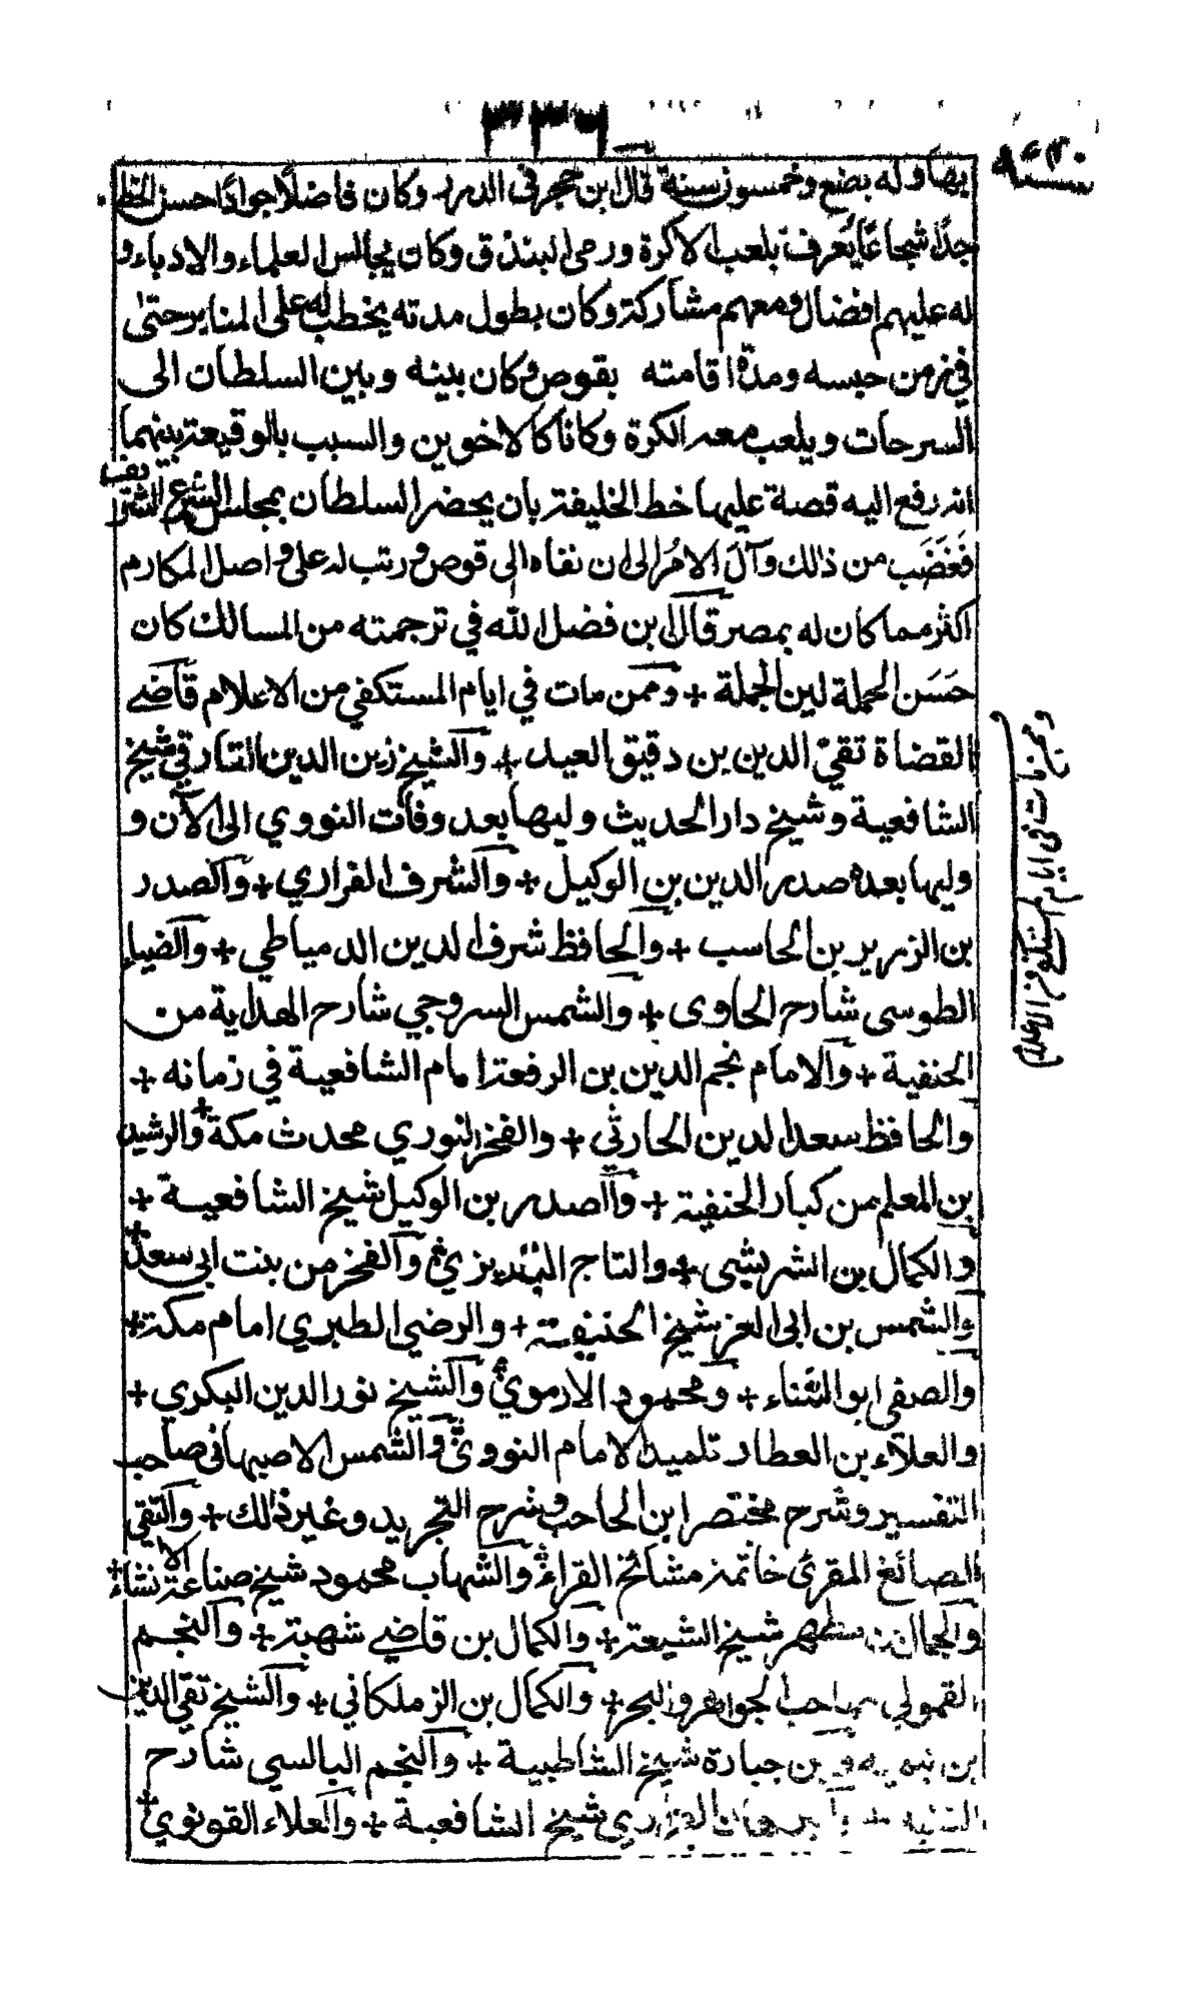 ٣٣٦
سنة ٧٤٠
بها وله بضع وخمسون سنة قال ابن حجر في الدرر وكان فاضلًا جوادًا حسن الخط
جدًا شجاعًا يُعرف بلعب الاكرة ورمى البندق وكان يجالس العلماء والادباء و
له عليهم افضال ومعهم مشاركة وكان بطول مدته يخطب له على المنابر حتى
في زمن حبسه ومدّة اقامته بقوص وكان بينه وبين السلطان الى
السرحات ويلعب معه الكرة وكانا كالاخوين والسبب بالوقيعة بينهما
انه رفع اليه قصة عليها خط الخليفة بان يحضر السلطان بمجلس الشرع الشريف
فَغَضَب من ذلك وآلَ الامرُ الى ان نفاه الى قوص ورتب له على واصل المكارم
اكثر مما كان له بمصر قال ابن فضل الله في ترجمته من المسالك كان
حَسَن الجملة لين الحملة + وممن مات في ايام المستكفي من الاعلام قاضي
القضاة تقيّ الدين بن دقيق العيد + والشيخ زين الدين الفارقي شيخ
الشافعية وشيخ دار الحديث وليها بعد وفات النووي الى الآن و
وليها بعده صدر الدين بن الوكيل + والشرف الفزاري + والصدر
بن الزرير بن الحاسب + والحافظ شرف الدين الدمياطي + والضياء
الطوسى شارح الحاوى + والشمس السروجي شارح الهداية من
الحنفية + والامام نجم الدين بن الرفعة امام الشافعية في زمانه +
والحافظ سعد الدين الحارثي + والفخر النوري محدث مكة + والرشيد
بن المعلم من كبار الحنفية + والصدر بن الوكيل شيخ الشافعية +
والكمال بن الشريشى + والتاج التبريزي + والفخر من بنت ابى سعد +
والشمس بن ابى العز شيخ الحنفية + والرضي الطبري امام مكة +
والصفى ابو الثناء + ومحمود الارموي + والشيخ نور الدين البكري +
والعلاء بن العطار تلميذ الامام النووي + والشمس الاصبهانى صاحب
التفسير وشرح مختصر ابن الحاجب وشرح التجريد وغير ذلك + والتقي
الصائغ المقرئ خاتمة مشائخ القراء + والشهاب محمود شيخ صناعة الانشاء +
والجمال بن مطهر شيخ الشيعة + والكمال بن قاضي شهبة + والنجم
القمولي صاحب الجواهر والبحر + والكمال بن الزملكاني + والشيخ تقي الدين
ابن تيمية وبن جبارة شيخ الشاطبية + والنجم البالسي شارح
التنبيه + والبرهان الفزاري شيخ الشافعية + والعلاء القونوي +
وممن مات في ايام المستكفي من الاعلام